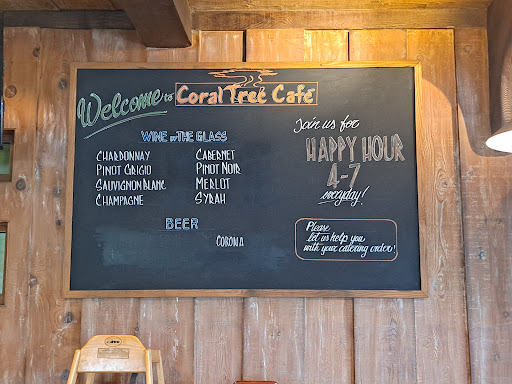 Welcome to Coral Tree Café
WINE BY THE GLASS
CHARDONNAY
PINOT GRIGIO
SAUVIGNON BLANC
CHAMPAGNE
CABERNET
PINOT NOIR
MERLOT
SYRAH
BEER
CORONA
Join us for
HAPPY HOUR
4-7
everyday!
Please
let us help you
with your catering order!